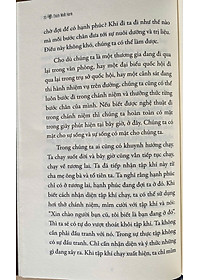 Thích Nhất Hạnh
chờ đợi để có hạnh phúc? Khi đi ta đi như thế nào
mà mỗi bước chân đưa tới sự nuôi dưỡng và trị liệu.
Điều này không khó, chúng ta có thể làm được.
Cho dù chúng ta là một thương gia đang đi
lại trong văn phòng, hay một đại biểu quốc hội đi
qua đi lại trong trụ sở quốc hội, hay một cảnh sát đang
thi hành nhiệm vụ trên đường phố, chúng ta cũng có thể
luôn bước đi trong chánh niệm và thưởng thức từng
bước chân của mình. Nếu biết được nghệ thuật đi
trong chánh niệm thì chúng ta hoàn toàn có mặt
trong giây phút hiện tại bây giờ, ở đây. Chúng ta có
mặt cho sự sống và sự sống có mặt cho chúng ta.
Trong chúng ta ai cũng có khuynh hướng chạy.
Ta chạy suốt đời và bây giờ cũng vẫn tiếp tục chạy,
chạy về tương lai. Ta đã tiếp nhận tập khí này từ
cha mẹ ông bà và tổ tiên ta. Ta nghĩ rằng hạnh phúc
chỉ có ở tương lai, hạnh phúc đang đợi ta ở đó. Khi
biết cách nhận diện tập khí chạy, ta có thể sử dụng
hơi thở chánh niệm, mỉm cười với tập khí và nói:
"Xin chào người bạn cũ, tôi biết là bạn đang ở đó".
Thì ta sẽ có tự do vượt thoát khỏi tập khí. Ta không
cần phải đấu tranh với nó. Trong sự thực tập không
có sự đấu tranh. Chỉ cần nhận diện và ý thức những
gì đang xảy ra. Khi tập khí chạy xuất hiện, ta chỉ mỉm